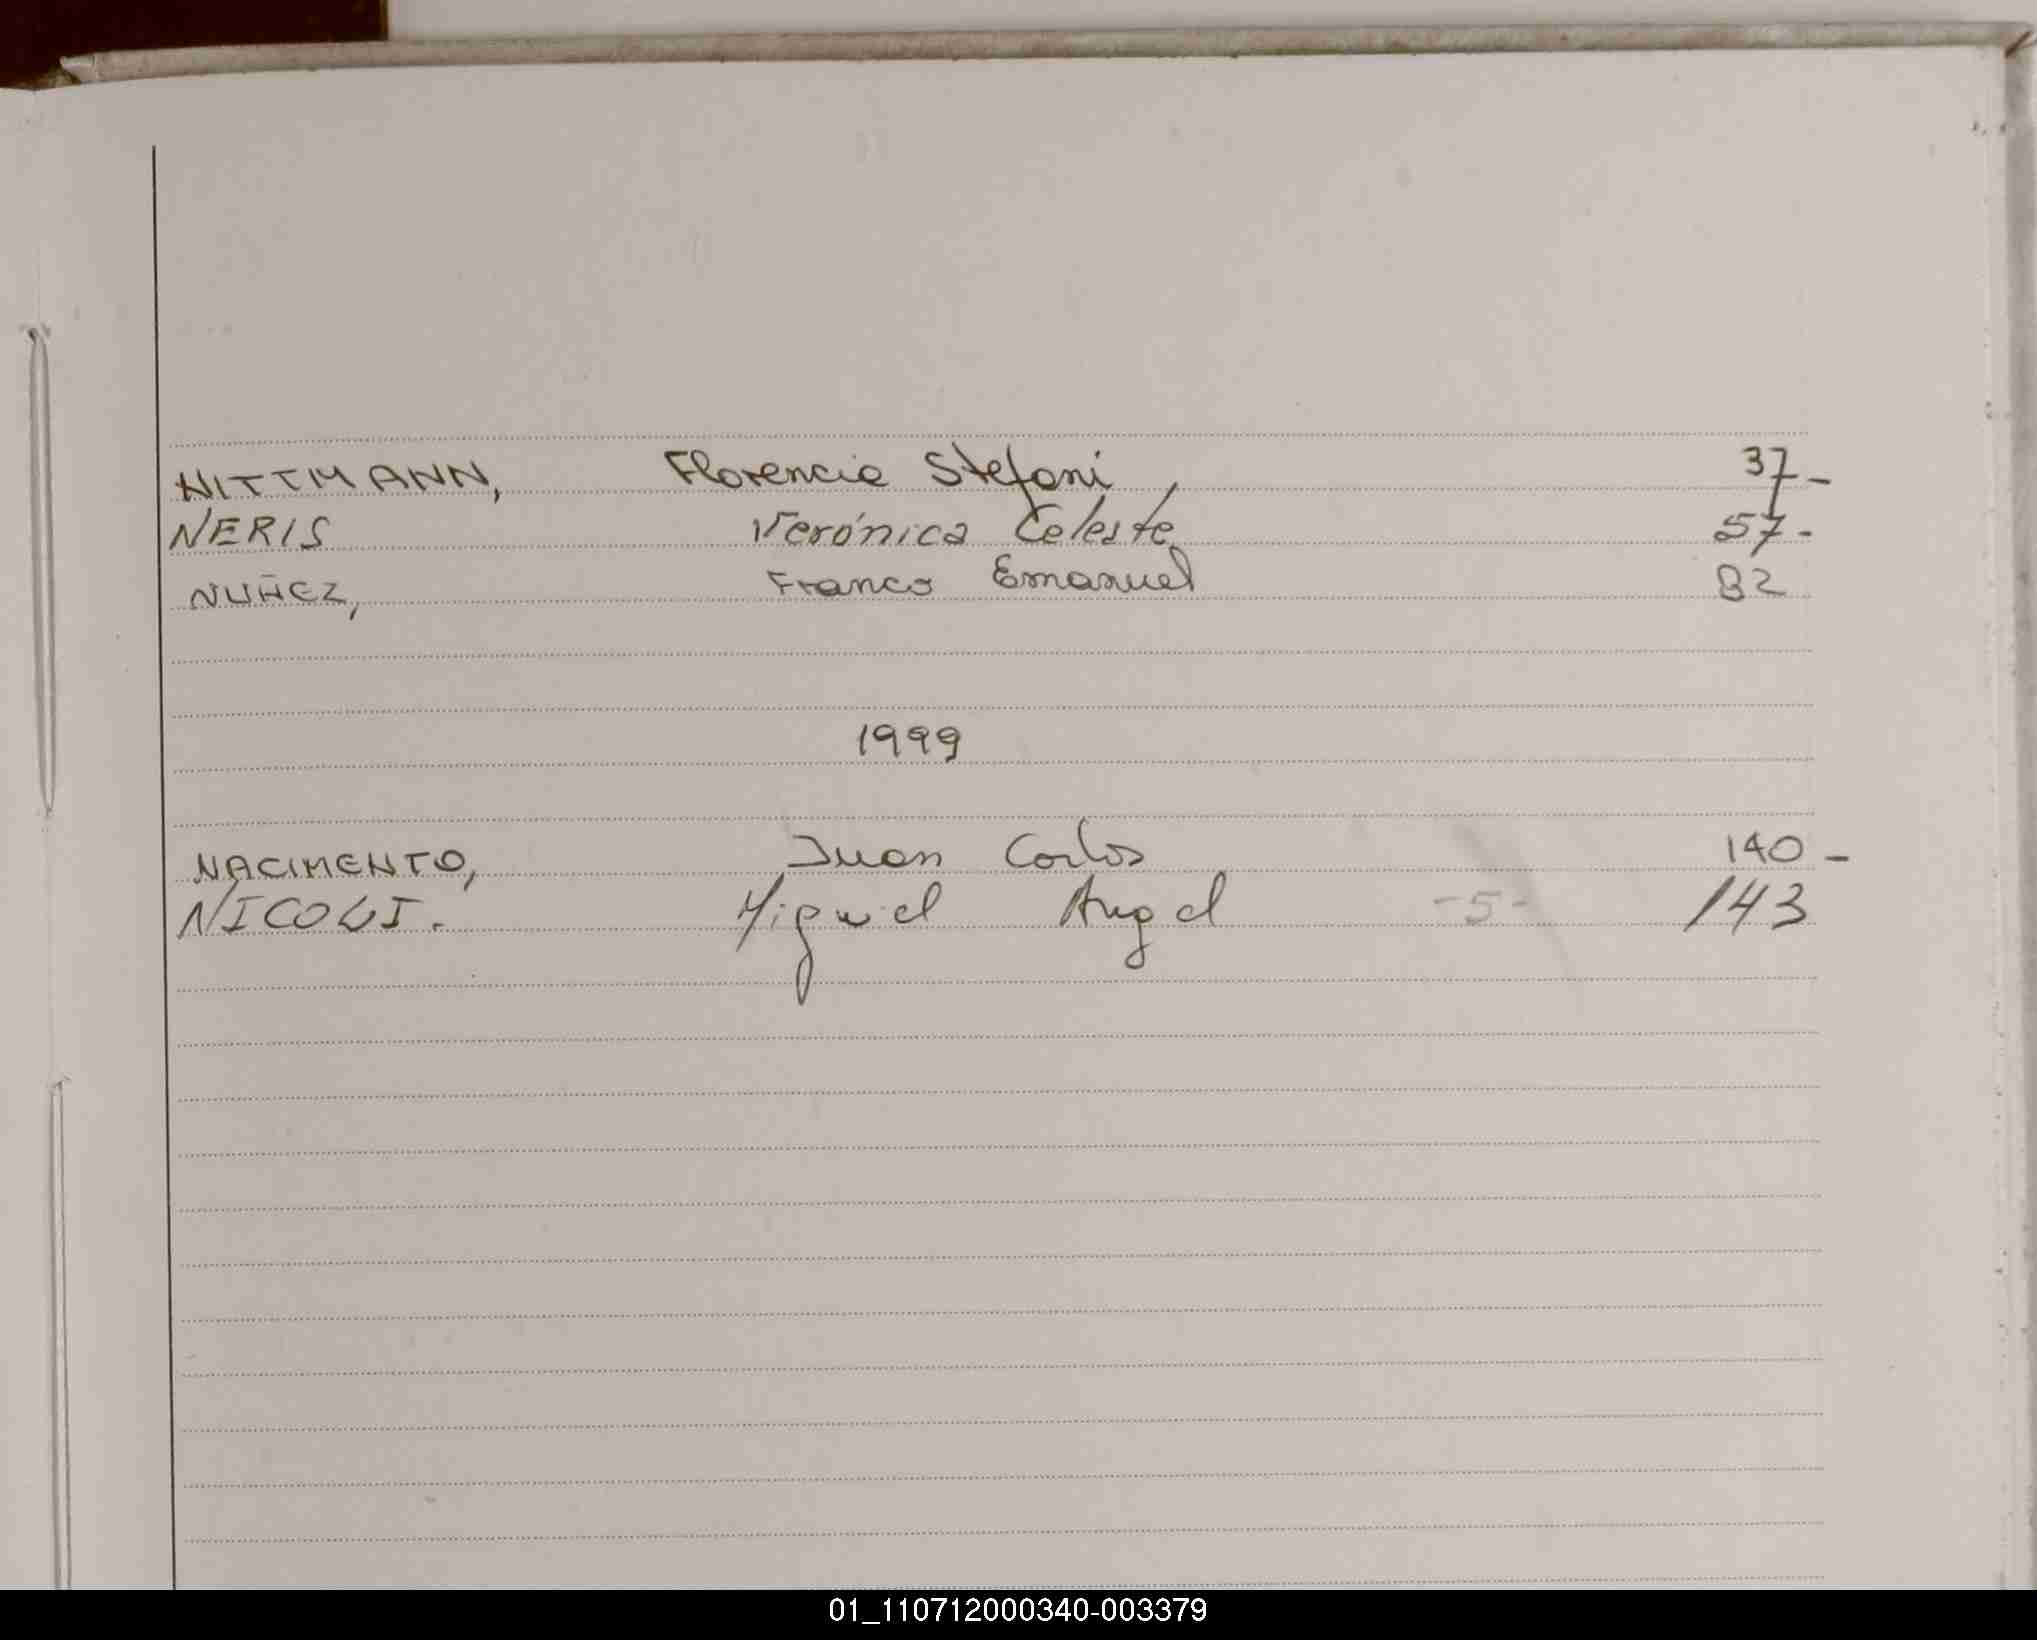 NITTMANN, Florencia Stefani 37-
NERIS Verónica Celeste 57-
NUÑEZ, Franco Emanuel 82
1999
NACIMENTO, Juan Carlos 140-
NICOLI. Miguel Angel -5- 143
01_110712000340-003379